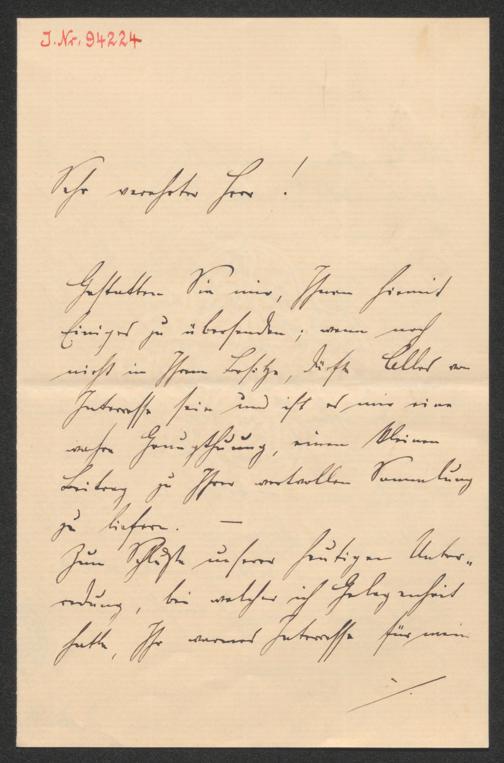 J. Nr. 94224
Sehr verehrter Herr!
Gestatten Sie mir, Ihnen hiemit
Einiges zu übersenden; wenn noch
nicht in Ihrem Besitze, dürfte Alles von
Interesse sein und ist es mir eine
wahre Genugthuung, einen kleinen
Beitrag zu Ihrer wertvollen Sammlung
zu liefern. —
Zum Schluße unserer heutigen Unter-
redung, bei welcher ich Gelegenheit
hatte, Ihr warmes Interesse für mein